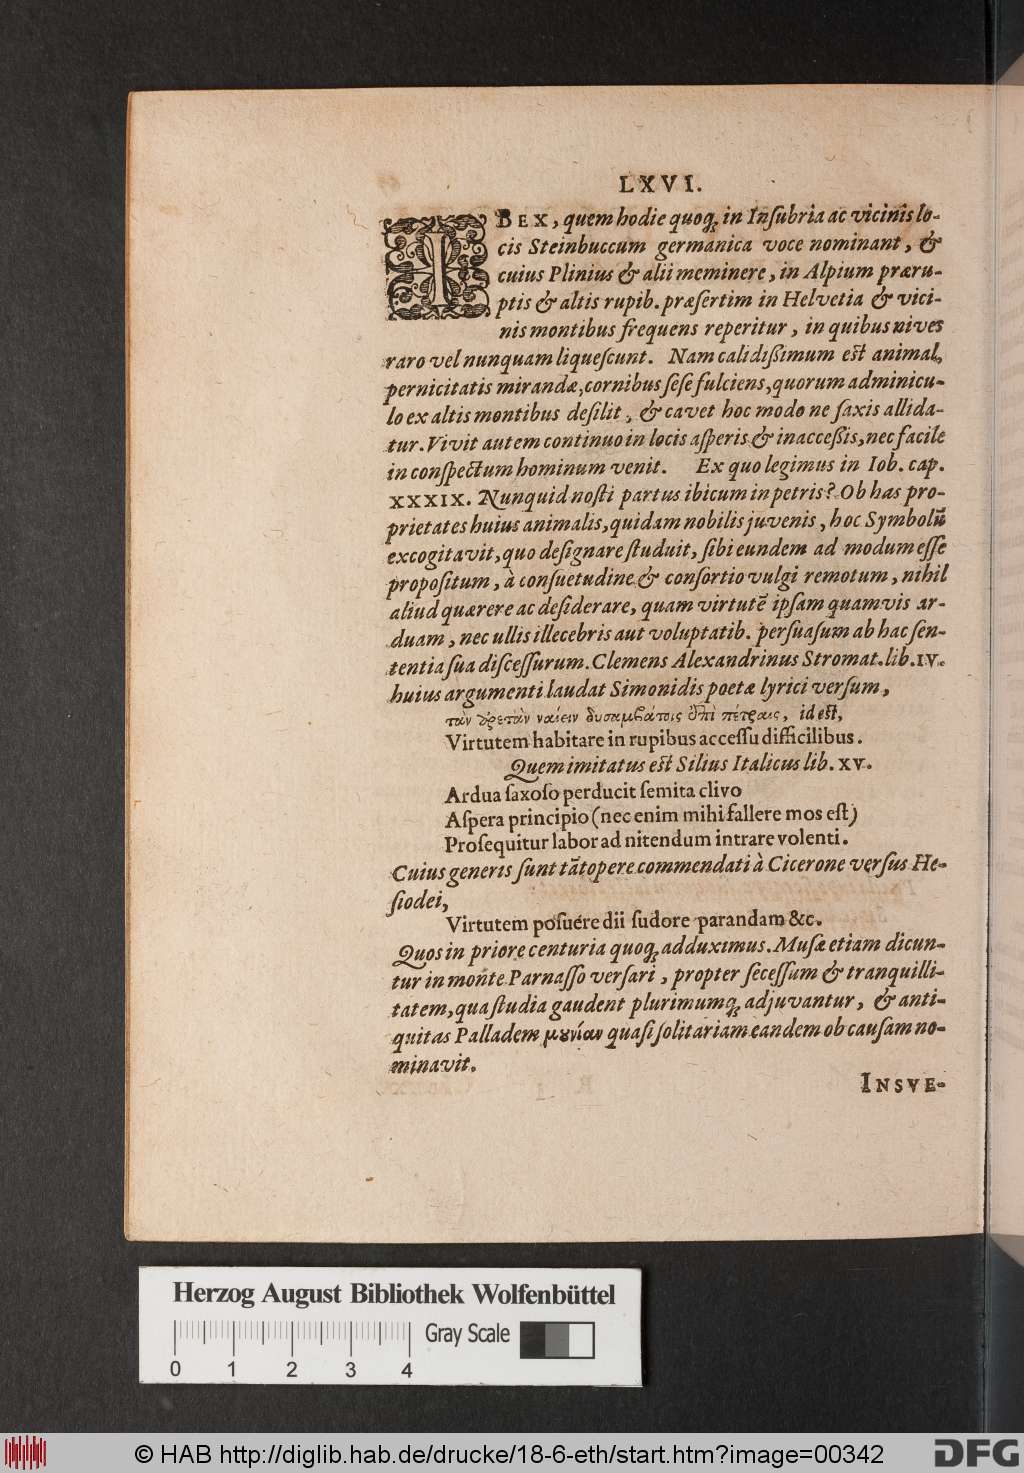 LXVI.
IBEX, quem hodie quoq; in Inſubria ac vicinis lo-
cis Steinbuccum germanica voce nominant, &
cuius Plinius & alii meminere, in Alpium præru-
ptis & altis rupib. præſertim in Helvetia & vici-
nis montibus frequens reperitur, in quibus nives
raro vel nunquam liqueſcunt. Nam calidißimum eſt animal,
pernicitatis mirandæ, cornibus ſeſe fulciens, quorum adminicu-
lo ex altis montibus deſilit, & cavet hoc modo ne ſaxis allida-
tur. Vivit autem continuo in locis aſperis & inacceßis, nec facile
in conſpectum hominum venit. Ex quo legimus in Iob. cap.
XXXIX. Nunquid noſti partus ibicum in petris? Ob has pro-
prietates huius animalis, quidam nobilis juvenis, hoc Symbolū
excogitavit, quo deſignare ſtuduit, ſibi eundem ad modum eſſe
propoſitum, à conſuetudine & conſortio vulgi remotum, nihil
aliud quærere ac deſiderare, quam virtutē ipſam quamvis ar-
duam, nec ullis illecebris aut voluptatib. perſuaſum ab hac ſen-
tentia ſua diſceſſurum. Clemens Alexandrinus Stromat. lib. IV.
huius argumenti laudat Simonidis poetæ lyrici verſum,
τὰν ἀρετὰν ναίειν δυσαμβάτοις ἐπὶ πέτραις, id eſt,
Virtutem habitare in rupibus acceſſu difficilibus.
Quem imitatus eſt Silius Italicus lib. XV.
Ardua ſaxoſo perducit ſemita clivo
Aſpera principio (nec enim mihi fallere mos eſt)
Proſequitur labor ad nitendum intrare volenti.
Cuius generis ſunt tātopere commendati à Cicerone verſus He-
ſiodei,
Virtutem poſuére dii ſudore parandam &c.
Quos in priore centuria quoq; adduximus. Muſæ etiam dicun-
tur in monte Parnaſſo verſari, propter ſeceſſum & tranquilli-
tatem, qua ſtudia gaudent plurimumq; adjuvantur, & anti-
quitas Palladem μουνίαν quaſi ſolitariam eandem ob cauſam no-
minavit.
INSVE-
Herzog August Bibliothek Wolfenbüttel
Gray Scale
0 1 2 3 4
© HAB http://diglib.hab.de/drucke/18-6-eth/start.htm?image=00342
DFG